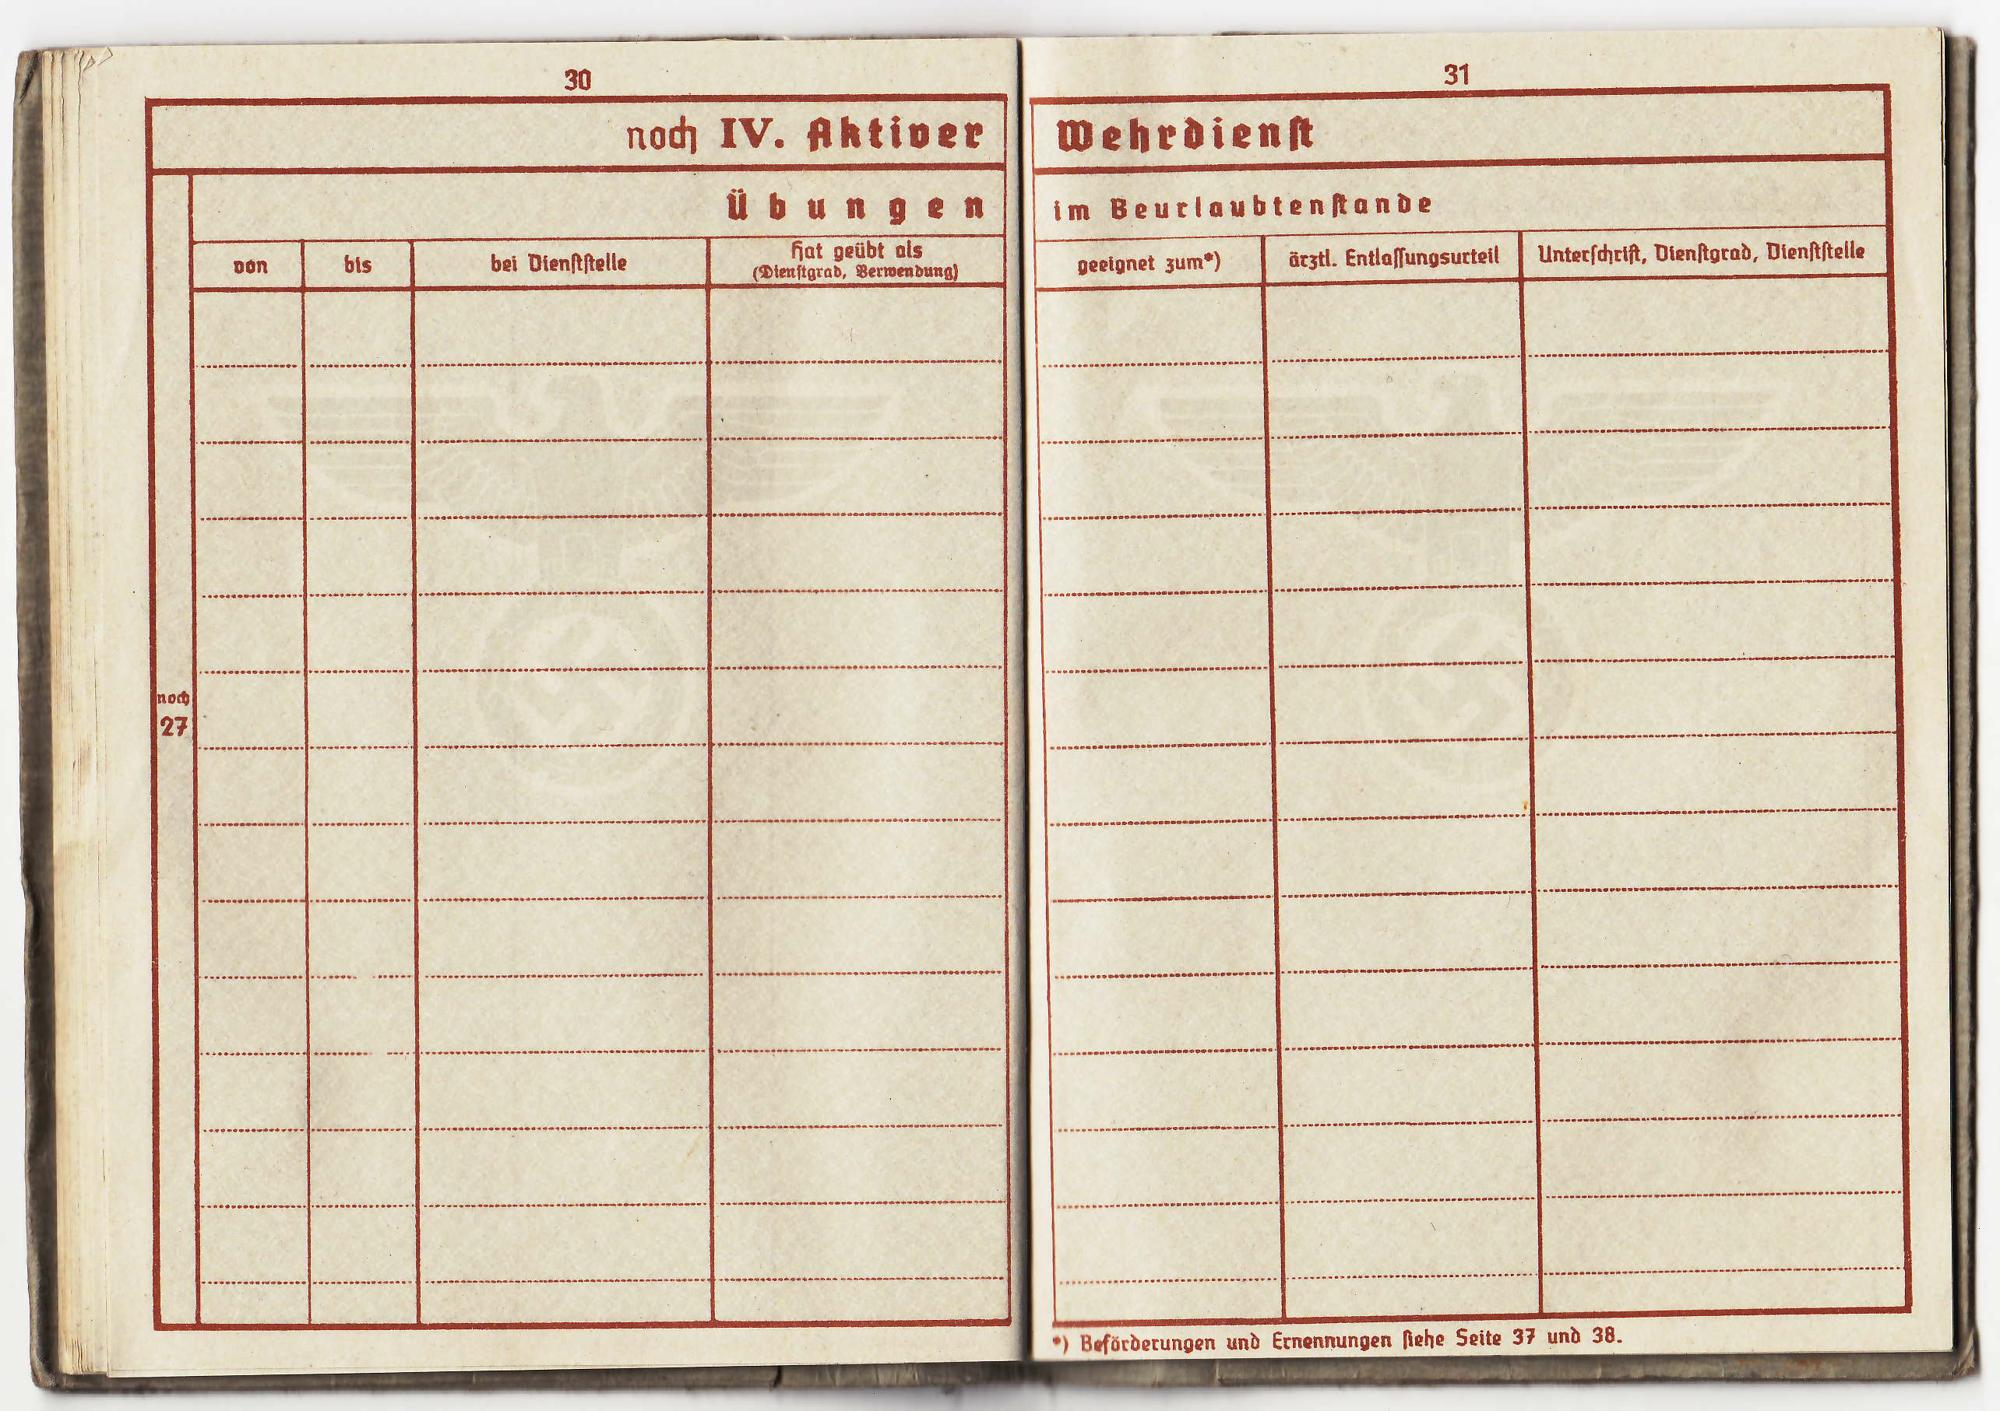 30
noch IV. Aktiver
Übungen
von
bis
bei Dienststelle
Hat geübt als
(Dienstgrad, Verwendung)
noch
27
31
Wehrdienst
im Beurlaubtenstande
geeignet zum*)
ärztl. Entlassungsurteil
Unterschrift, Dienstgrad, Dienststelle
*) Beförderungen und Ernennungen siehe Seite 37 und 38.